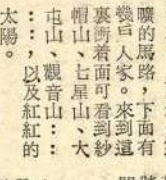 曠的馬路，下面有
幾戶人家。來到這
裏衝着面可看到紗
帽山、七星山、大
屯山、觀音山：：
：：，以及紅紅的
太陽。